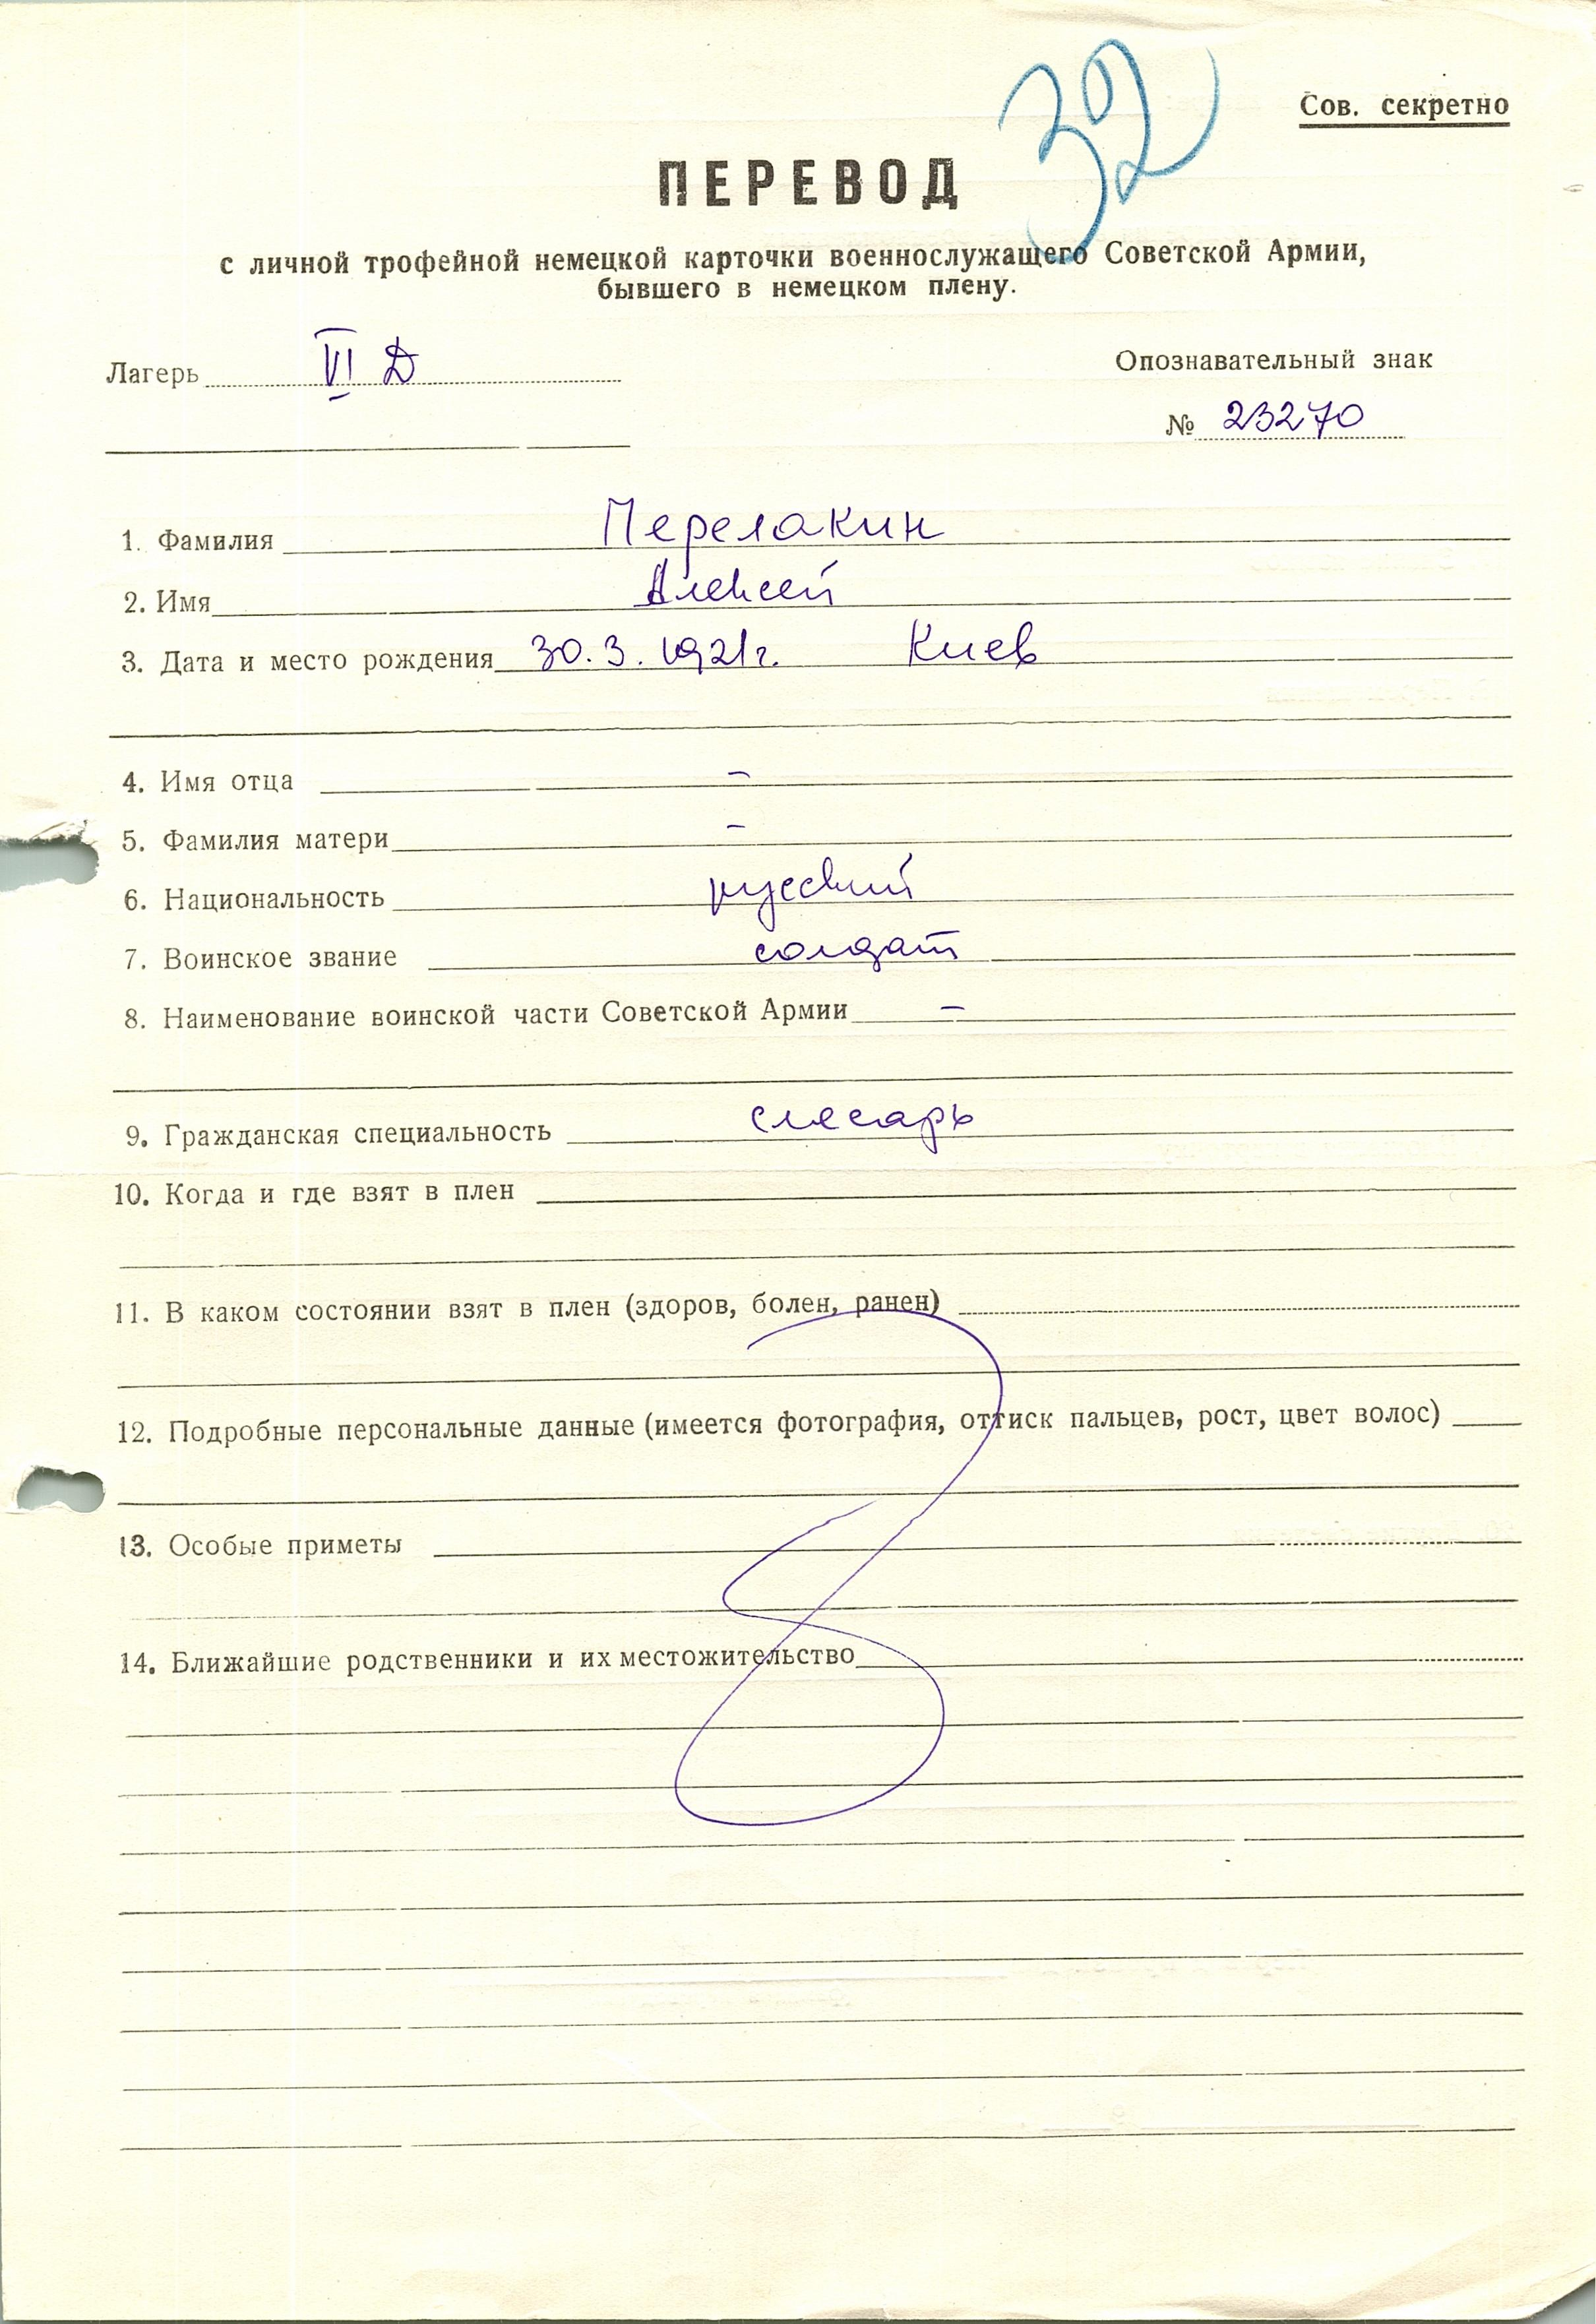 32
Сов. секретно
ПЕРЕВОД
с личной трофейной немецкой карточки военнослужащего Советской Армии,
бывшего в немецком плену.
Лагерь VI Д
Опознавательный знак
№ 23270
1. Фамилия Перелакин
2. Имя Алексей
3. Дата и место рождения 30.3.1921г. Киев
4. Имя отца –
5. Фамилия матери –
6. Национальность русский
7. Воинское звание солдат
8. Наименование воинской части Советской Армии –
9. Гражданская специальность слесарь
10. Когда и где взят в плен
11. В каком состоянии взят в плен (здоров, болен, ранен)
12. Подробные персональные данные (имеется фотография, оттиск пальцев, рост, цвет волос)
13. Особые приметы
14. Ближайшие родственники и их местожительство